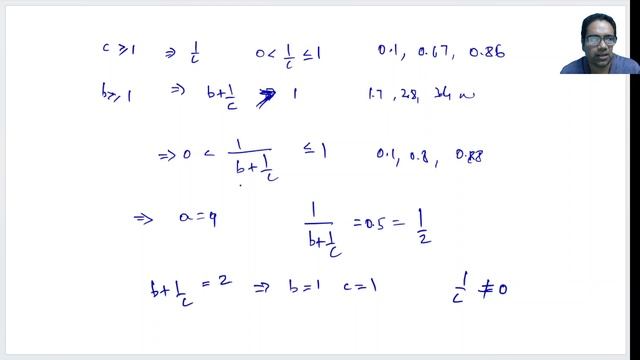 c ≥ 1 ⇒ 1/c 0 < 1/c ≤ 1 0.1, 0.67, 0.86
b ≥ 1 ⇒ b + 1/c > 1 1.7, 2.8,
⇒ 0 < 1/(b + 1/c) ≤ 1 0.1, 0.8, 0.88
⇒ a = 9 1/(b + 1/c) = 0.5 = 1/2
b + 1/c = 2 ⇒ b = 1 c = 1 1/c ≠ 0